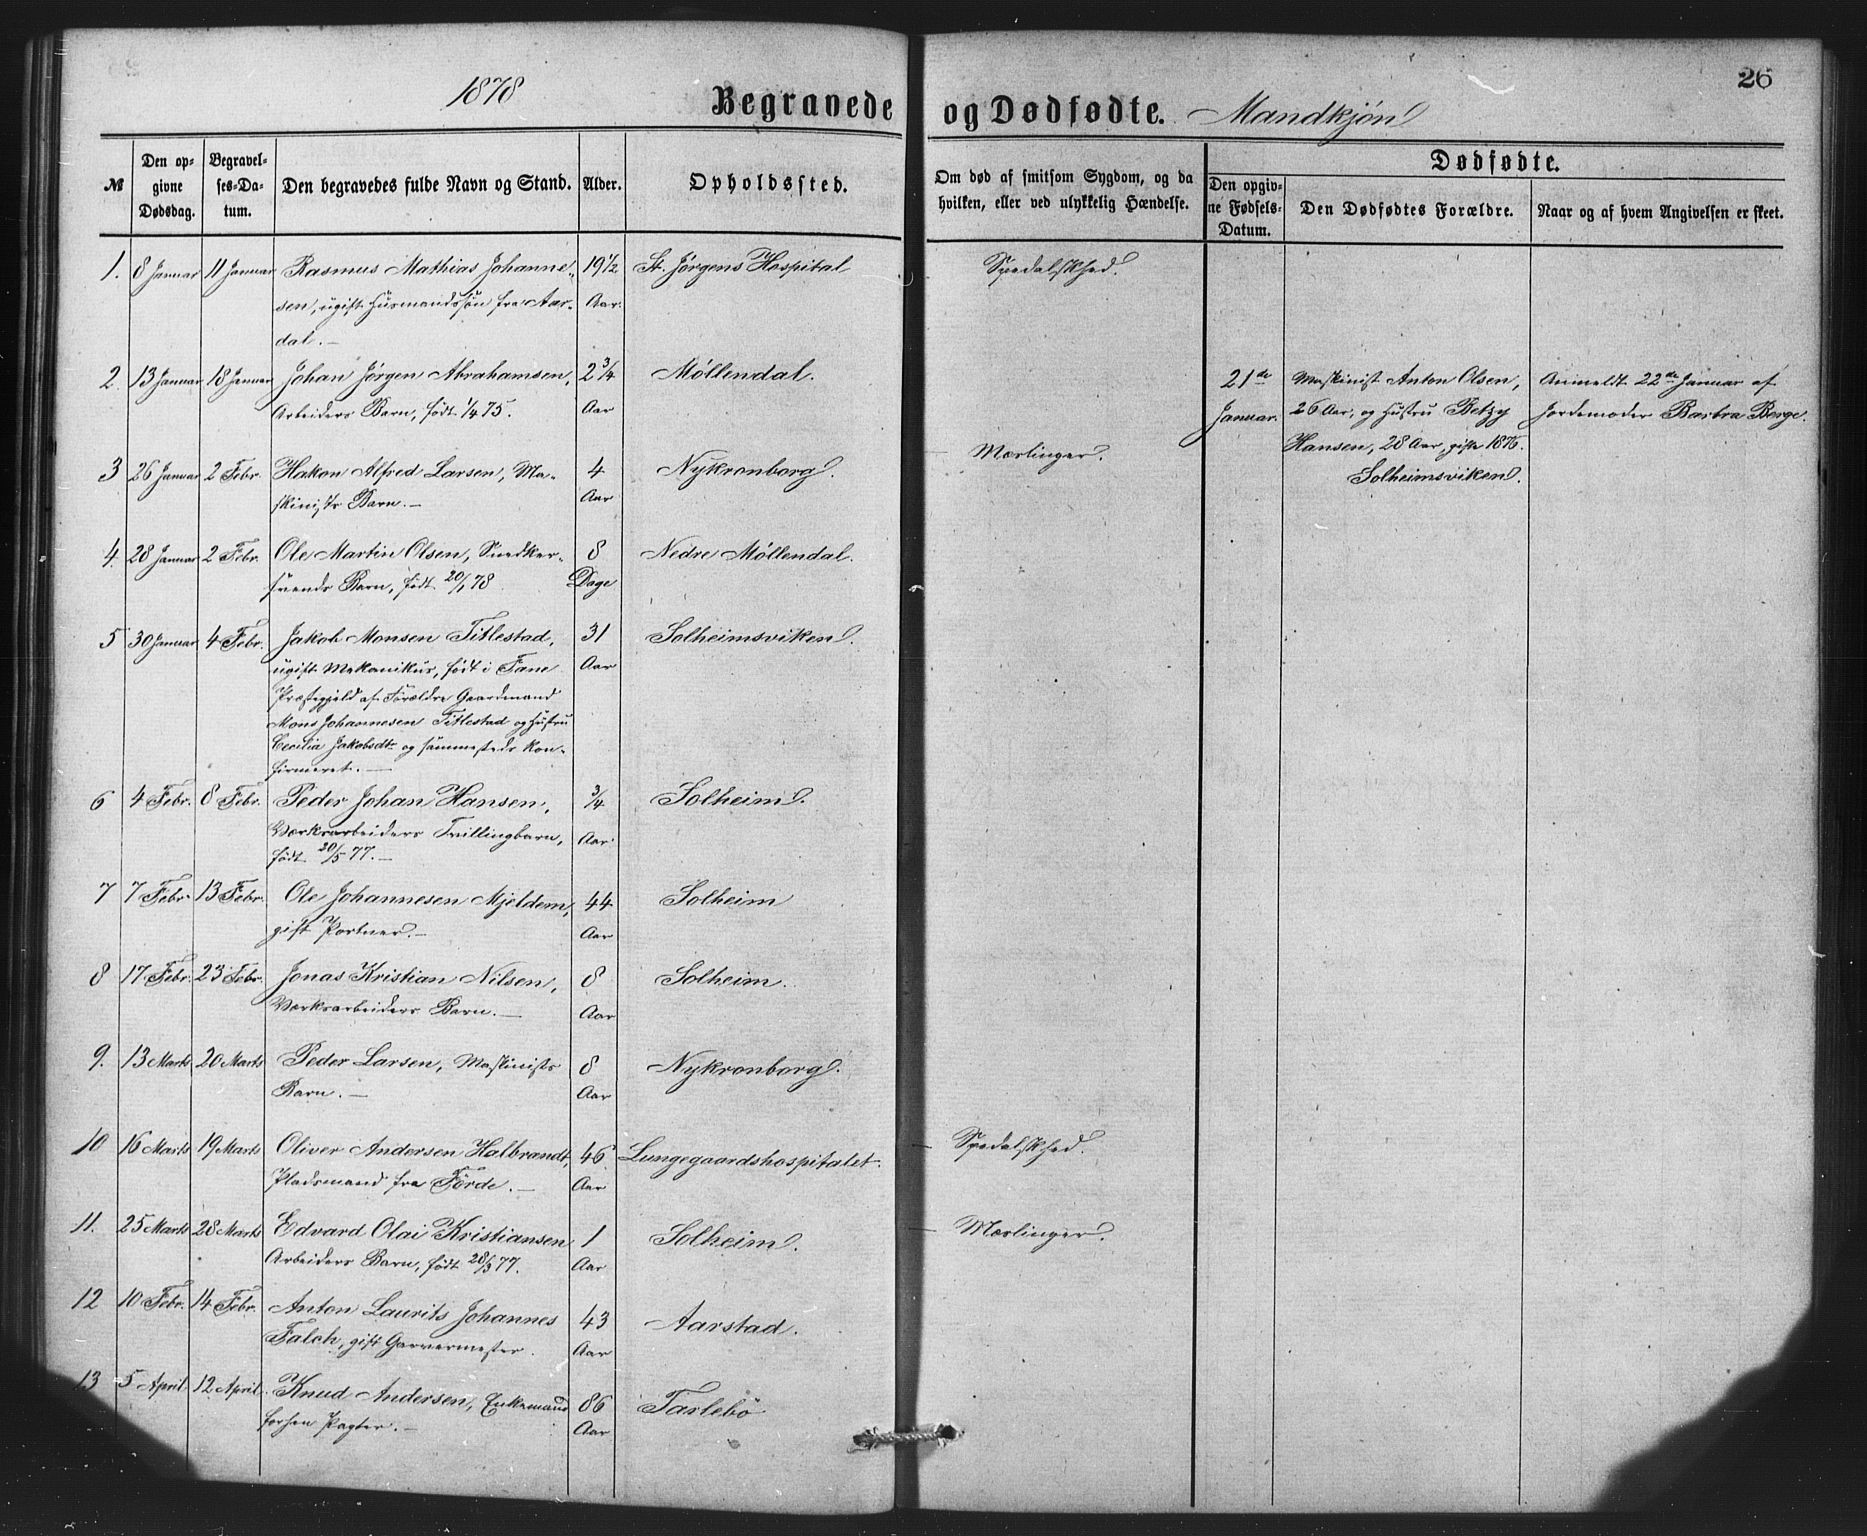 1878
26
Begravede og Dødfødte. Mandkjøn
№
Den op-
givne
Dødsdag.
Begravel-
ses-Da-
tum.
Den begravedes fulde Navn og Stand.
Alder.
Opholdssted.
Om død af smitsom Sygdom, og da
hvilken, eller ved ulykkelig Hændelse.
Dødfødte.
Den opgiv-
ne Fødsels-
Datum.
Den Dødfødtes Forældre.
Naar og af hvem Angivelsen er skeet.
1. 8 Januar 11 Januar Rasmus Mathias Johanne- 19 1/2 St. Jørgens Hospital Spedalskhed.
sen, ugift Husmandssøn fra Aar- Aar.
dal. —
2. 13 Januar 18 Januar Johan Jørgen Abrahamsen, 2 3/4 Møllendal.
Arbeiders Barn, født 1/4 75. Aar
21de Maskinist Anton Olsen, Anmeldt 22de Januar af
Januar. 26 Aar, og Hustru Betzy Jordemoder Barbra Berge.
Hansen, 28 Aar, gifte 1876.
Solheimsviken.
3 26 Januar 2 Febr. Hakon Alfred Larsen, Ma- 4 Nykronborg. Mæslinger.
skinists Barn. — Aar
4. 28 Januar 2 Febr. Ole Martin Olsen, Snedker- 8 Nedre Møllendal.
svends Barn, født 20/1 78. Dage
5 30 Januar 4 Febr. Jakob Monsen Titlestad, 31 Solheimsviken.
ugift Mekanikus, født i Fane Aar
Præstegjeld af Forældre Gaardmand
Mons Johannesen Titlestad og Hustru
Cecilia Jakobsdtr og sammesteds kon-
firmeret. —
6 4 Febr. 8 Febr. Peder Johan Hansen, 3/4 Solheim.
Værksarbeiders Tvillingbarn, Aar
født 20/5 77. —
7 7 Febr. 13 Febr. Ole Johannesen Mjeldem, 44 Solheim
gift Portner. — Aar
8 17 Febr. 23 Febr. Jonas Kristian Nilsen, 8 Solheim.
Værksarbeiders Barn. — Aar
9. 13 Marts 20 Marts Peder Larsen, Maskinists 8 Nykronborg.
Barn. — Aar
10 16 Marts 19 Marts Oliver Andersen Halbrandt, 46 Lungegaardshospitalet. Spedalskhed.
Pladsmand fra Førde. — Aar
11. 25 Marts 28 Marts Edvard Olai Kristiansen 1 Solheim. Mæslinger.
Arbeiders Barn, født 28/3 77. Aar
12 10 Febr. 14 Febr. Anton Laurits Johannes 43 Aarstad.
Falch, gift Garvermester. Aar
13 5 April 12 April Knud Andersen, Enkemand 86 Tarlebø
forhen Pagter. — Aar